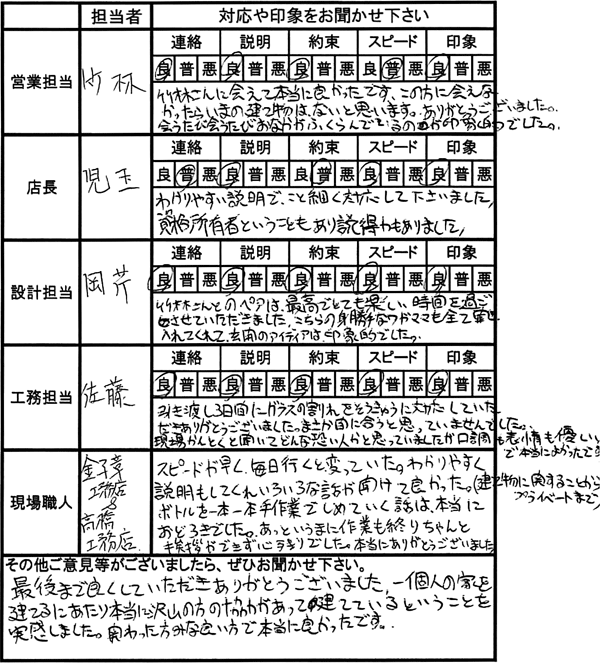 担当者 対応や印象をお聞かせ下さい
営業担当 竹林
連絡 説明 約束 スピード 印象
良 普 悪 良 普 悪 良 普 悪 良 普 悪 良 普 悪
竹林さんに会えて本当に良かったです。この方に会えな
かったらいまの建て物は、ないと思います。ありがとうございました。
会うたび会うたびおなかがふくらんでいるのが印象的でした。
店長 児玉
連絡 説明 約束 スピード 印象
良 普 悪 良 普 悪 良 普 悪 良 普 悪 良 普 悪
わかりやすい説明で、こと細く対応して下さいました。
資格所有者ということもあり説得力もありました。
設計担当 岡芹
連絡 説明 約束 スピード 印象
良 普 悪 良 普 悪 良 普 悪 良 普 悪 良 普 悪
竹林さんとのペアは、最高でとても楽しい時間を過ご
させていただきました。こちらの身勝手なワガママも全て
入れてくれて、玄関のアイディアは、印象的でした。
工務担当 佐藤
連絡 説明 約束 スピード 印象
良 普 悪 良 普 悪 良 普 悪 良 普 悪 良 普 悪
引き渡し3日前にガラスの割れをそうきゅうに対応していた
だきありがとうございました。まさか間に合うと思っていませんでした。
現場かんとくと聞いてどんな恐い人かと思っていましたが口調も表情も優しい
で本当によかったです
現場職人
金子
工務店
高橋
工務店
スピードが早く、毎日行くと変っていた。わかりやすく
説明もしてくれいろいろな話が聞けて良かった。(建て物に関することから
プライベートまで)
ボトルを一本一本手作業でしめていく話は、本当に
おどろきでした。あっというまに作業も終りちゃんと
挨拶ができずにでした。本当にありがとうございました
その他ご意見等がございましたら、ぜひお聞かせ下さい。
最後まで良くしていただきありがとうございました。一個人の家を
建てるにあたり本当に沢山の方の協力があって建てているということを
実感しました。関わった方みな良い方で本当に良かったです。